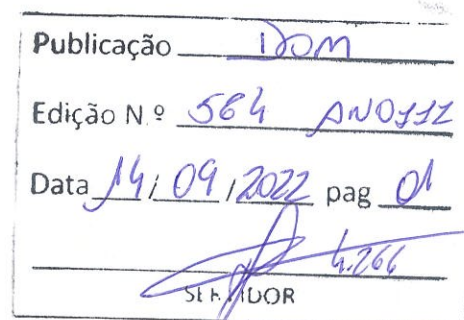 Publicação DOM
Edição N.º 564 ANO III
Data 14/09/2022 pag 01
4.266
SERVIDOR